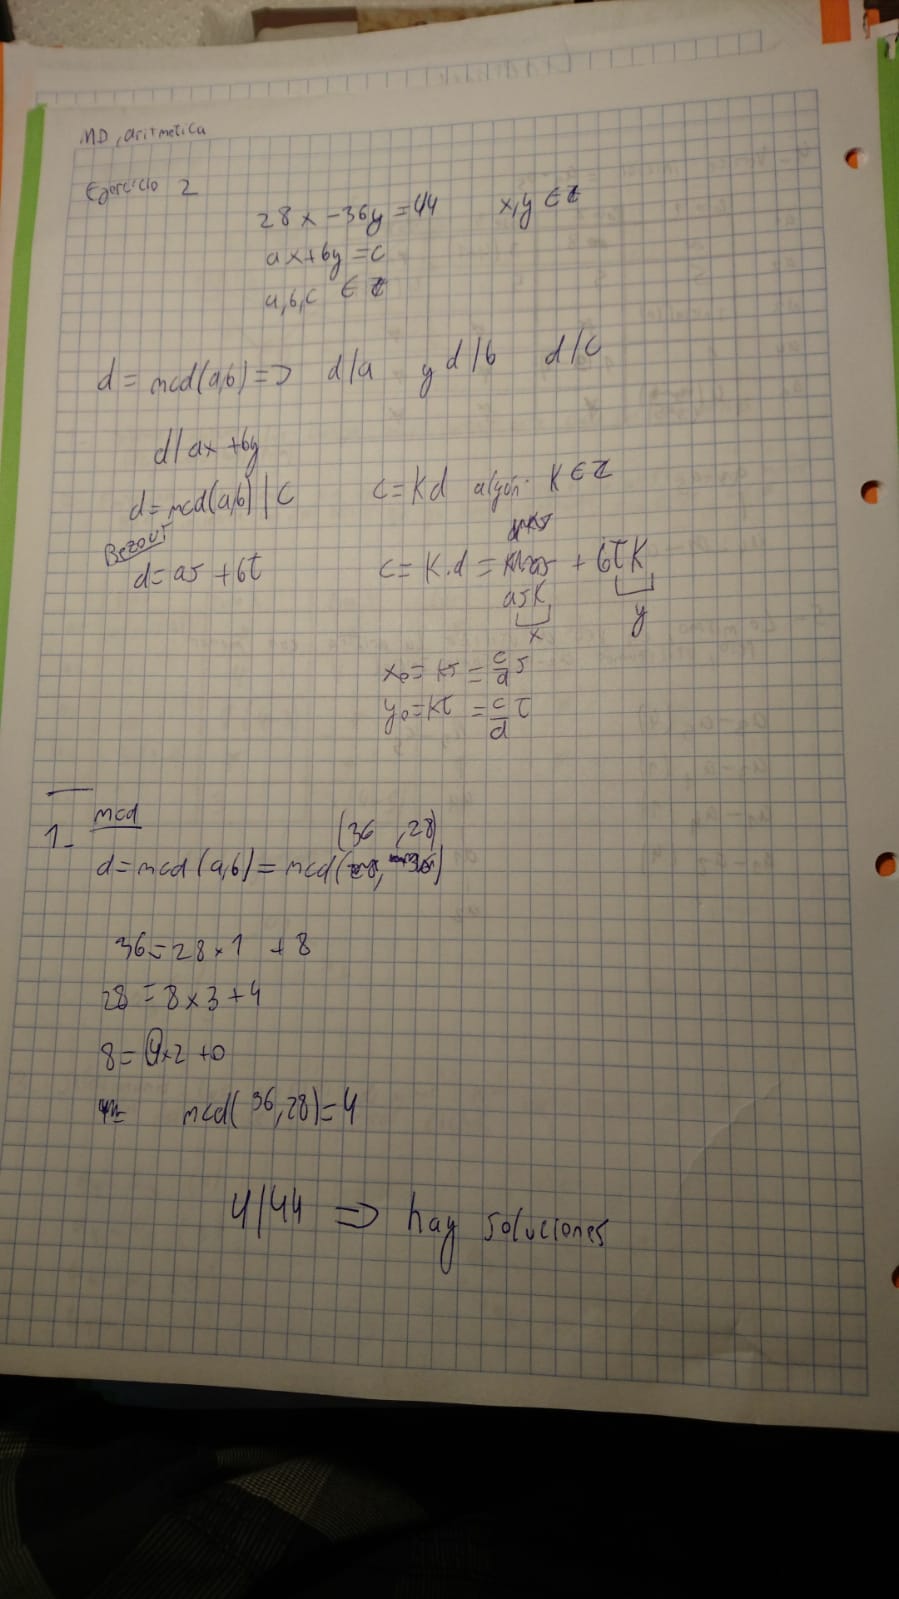 MD, aritmetica
Ejercicio 2
28x - 36y = 44 x,y ∈ Z
ax + by = c
a,b,c ∈ Z
d = mcd(a,b) => d/a y d/b d/c
d/ax + by
d = mcd(a,b) | c c = Kd algún K ∈ Z
Bezout
d = as + bt c = K.d = asK + btK
x y
x₀ = Ks = c/d s
y₀ = Kt = c/d t
1- mcd
d = mcd(a,b) = mcd(36, 28)
36 = 28 x 1 + 8
28 = 8 x 3 + 4
8 = 4 x 2 + 0
mcd(36, 28) = 4
4/44 => hay soluciones